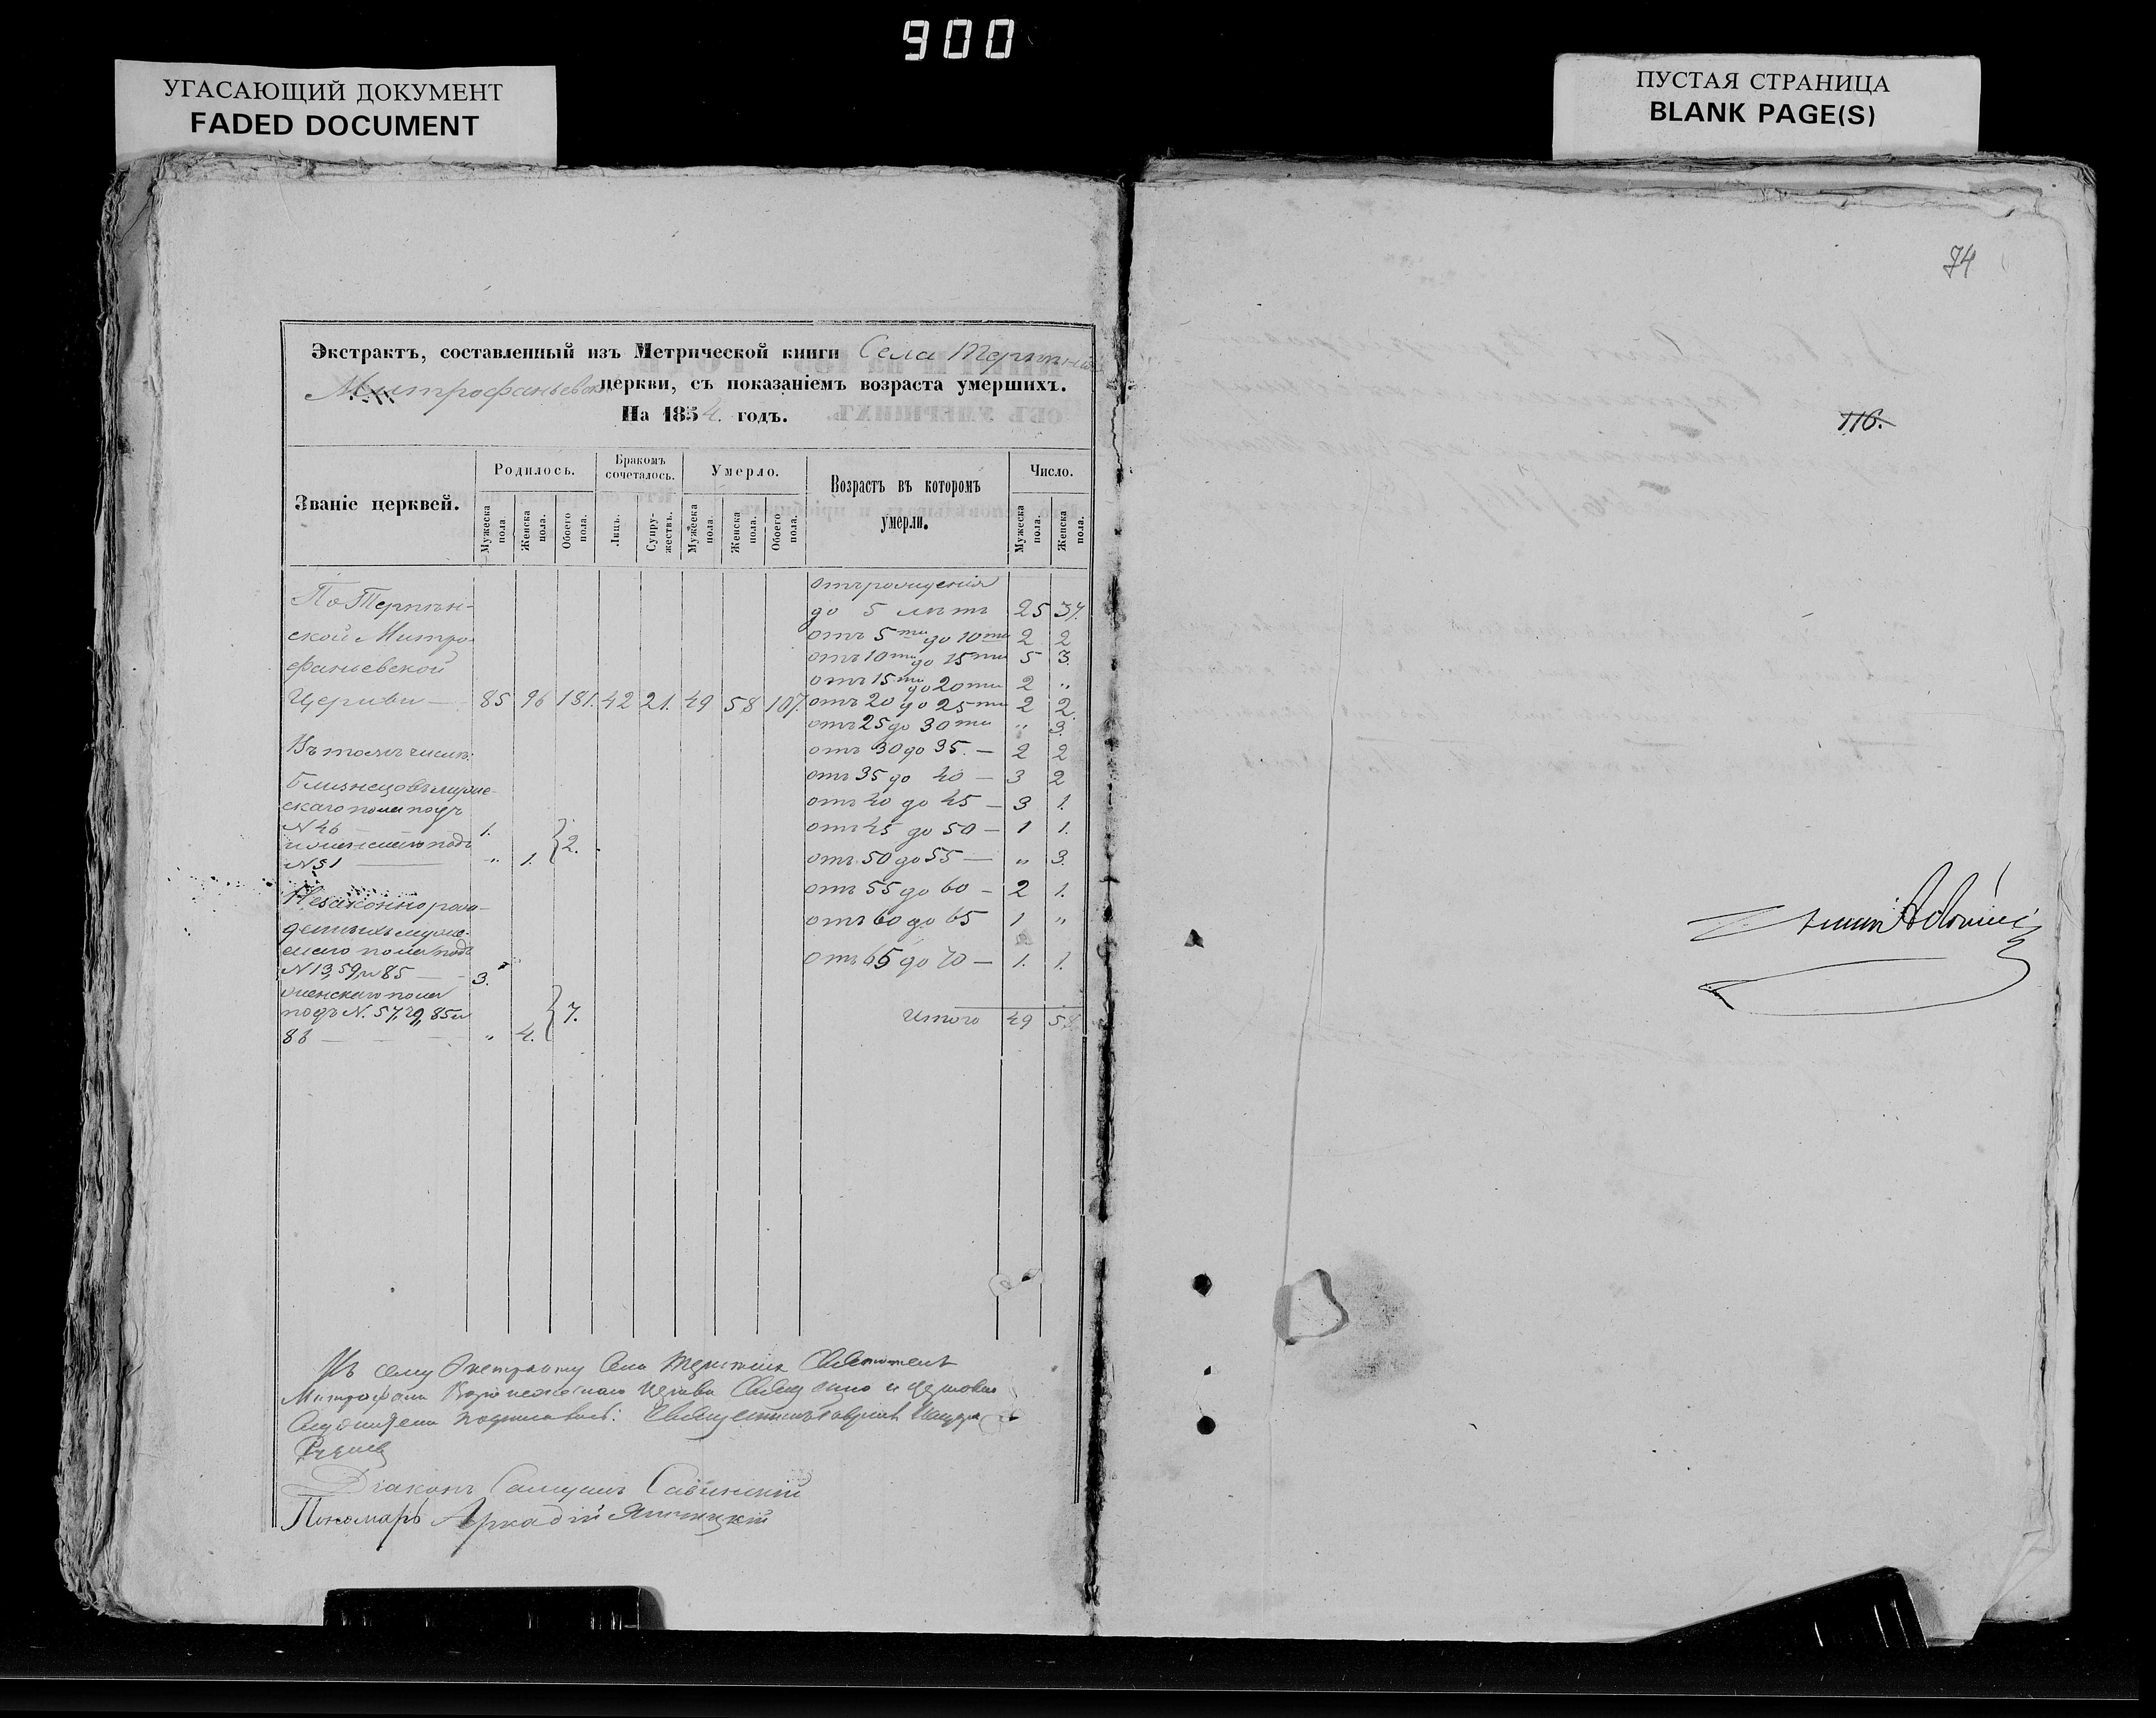 900
УГАСАЮЩИЙ ДОКУМЕНТ
FADED DOCUMENT
ПУСТАЯ СТРАНИЦА
BLANK PAGE(S)
74
116.
Экстрактъ, составленный изъ Метрической книги Села
Митрофаньевской церкви, съ показаніемъ возраста умершихъ.
На 1854. годъ.
Званіе церквей.
Родилось.
Бракомъ сочеталось.
Умерло.
Возрастъ въ которомъ умерли.
Число.
Мужеска пола.
Женска пола.
Обоего пола.
Лицъ.
Супружествъ.
Мужеска пола.
Женска пола.
Обоего пола.
Мужеска пола.
Женска пола.
отъ рожденія
По Терпѣн- до 5 лѣтъ 25 37.
ской Митро- отъ 5ти до 10ти 2 2
фаньевской отъ 10ти до 15ти 5 3.
отъ 15ти до 20ти 2 "
Церкви — 85 96 181. 42 21. 49 58 107. отъ 20 до 25ти 2 2.
отъ 25 до 30ти " 3.
Въ томъ числѣ: отъ 30 до 35. — 2 2
Близнецовъ муже- отъ 35 до 40 — 3 2
скаго пола подъ отъ 40 до 45 — 3 1.
N 46 1. отъ 45 до 50 — 1 1.
и женскаго подъ 2.
N 51 " 1. отъ 50 до 55 — " 3.
Незаконнорож- отъ 55 до 60 — 2 1.
денныхъ муже- отъ 60 до 65 1 "
скаго пола подъ
N 13, 59, и 85 — 3. отъ 65 до 70 — 1. 1.
женскаго пола
подъ N. 57, 85 и 7. Итого 49 58.
86 — " 4.
Къ сему Экстракту Села Святителя
Митрофана Воронежскаго Церкви Священно и церковно
служители подписались: Священникъ Гавріилъ
Діаконъ Самуилъ Савинскій
Пономарь Аркадій